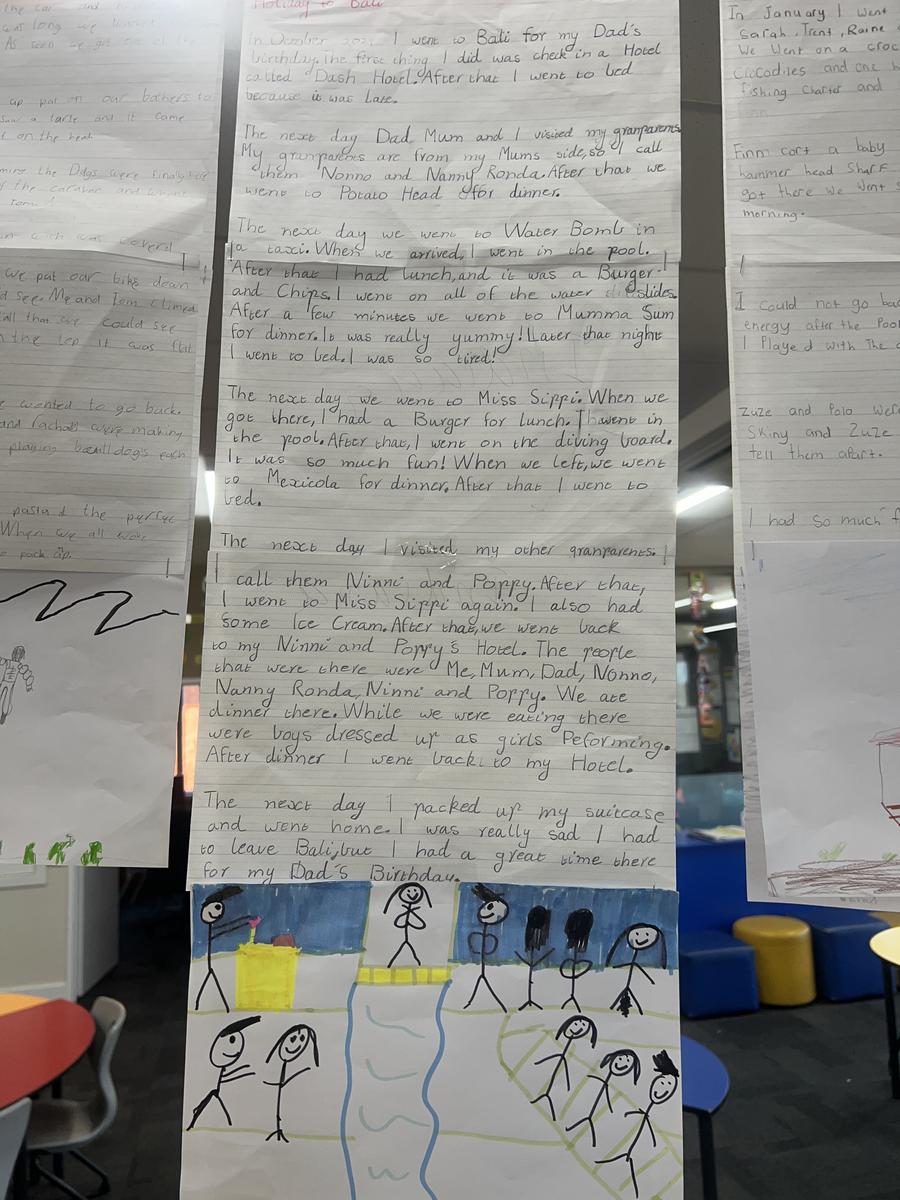 Holiday to Bali
In October 2024 I went to Bali for my Dad's
birthday. The first thing I did was check in a Hotel
called Dash Hotel. After that I went to bed
because it was late.
The next day Dad Mum and I visited my granparents.
My granparents are from my Mums side, so I call
them Nonno and Nanny Ronda. After that we
went to Potato Head for dinner.
The next day we went to Water Bomb in
a taxi. When we arrived, I went in the pool.
After that I had lunch, and it was a Burger
and Chips. I went on all of the water slides.
After a few minutes we went to Mumma Sum
for dinner. It was really yummy! Later that night
I went to bed. I was so tired!
The next day we went to Miss Sippi. When we
got there, I had a Burger for lunch. I went in
the pool. After that, I went on the diving board.
It was so much fun! When we left, we went
to Mexicola for dinner. After that I went to
bed.
The next day I visited my other granparents.
I call them Ninni and Poppy. After that,
I went to Miss Sippi again. I also had
some Ice Cream. After that, we went back
to my Ninni and Poppy's Hotel. The people
that were there were Me, Mum, Dad, Nonno,
Nanny Ronda, Ninni and Poppy. We ate
dinner there. While we were eating there
were boys dressed up as girls Peforming.
After dinner I went back to my Hotel.
The next day I packed up my suitcase
and went home. I was really sad I had
to leave Bali, but I had a great time there
for my Dad's Birthday.
the car and
was long we
As soon we got
up put on our bathers to
saw a tarle and it came
on the
the Dogs were finaly
the caravan and
we put our biks dean
d see. Me and Tom climed
all that we could see
the top it was flat
wanted to go back.
and rachal were making
playing each
pasta the
When we all woke
pack up.
In January I went
Sarah, Trent, Raine
We Went on a croc
Crocodiles and one
fishing Charter and
Finn cort a baby
hammer head Shark
got there we Went
morning.
I could not go bac
energy after the Pool
I Played with The
Zuze and Polo Were
Skiny and Zuze
tell them apart.
I had so much f